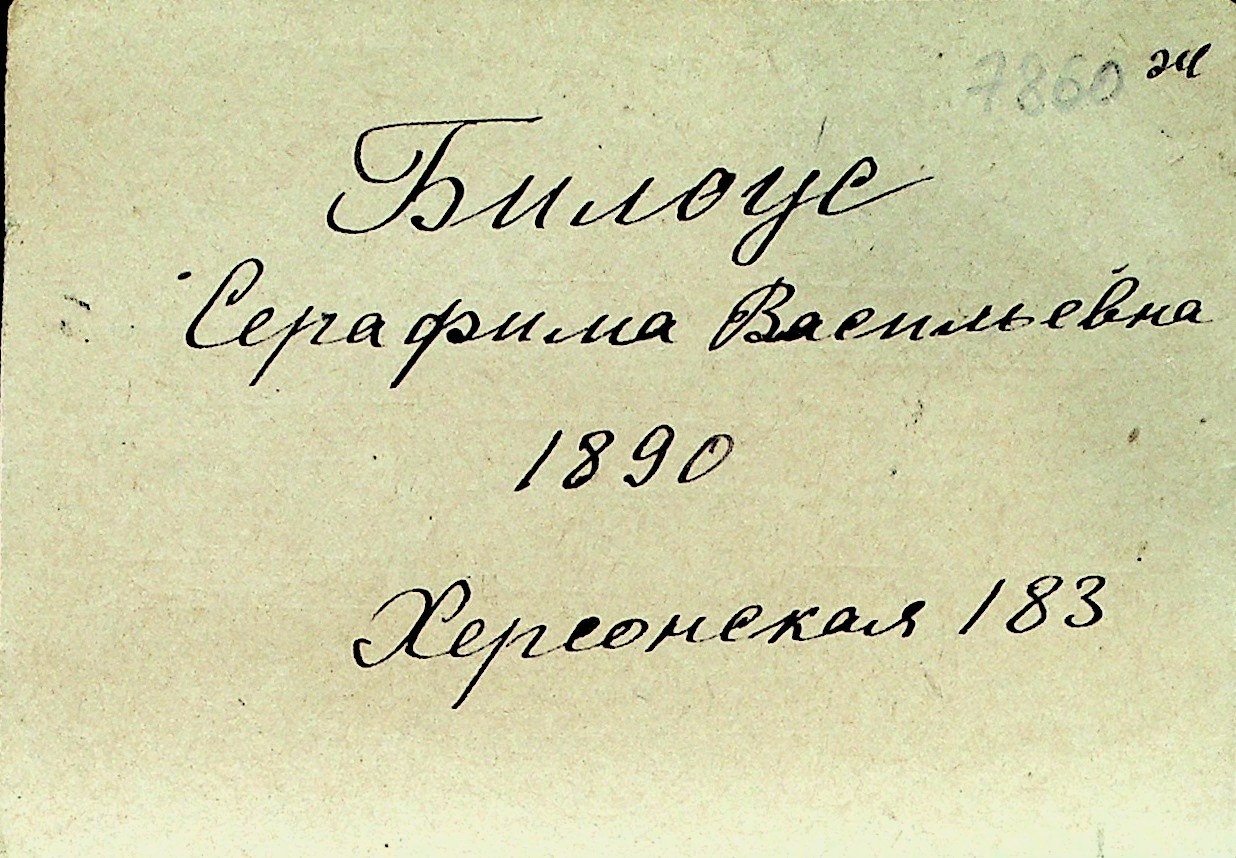 7860 ж
Билоус
Серафима Васильевна
1890
Херсонская 183